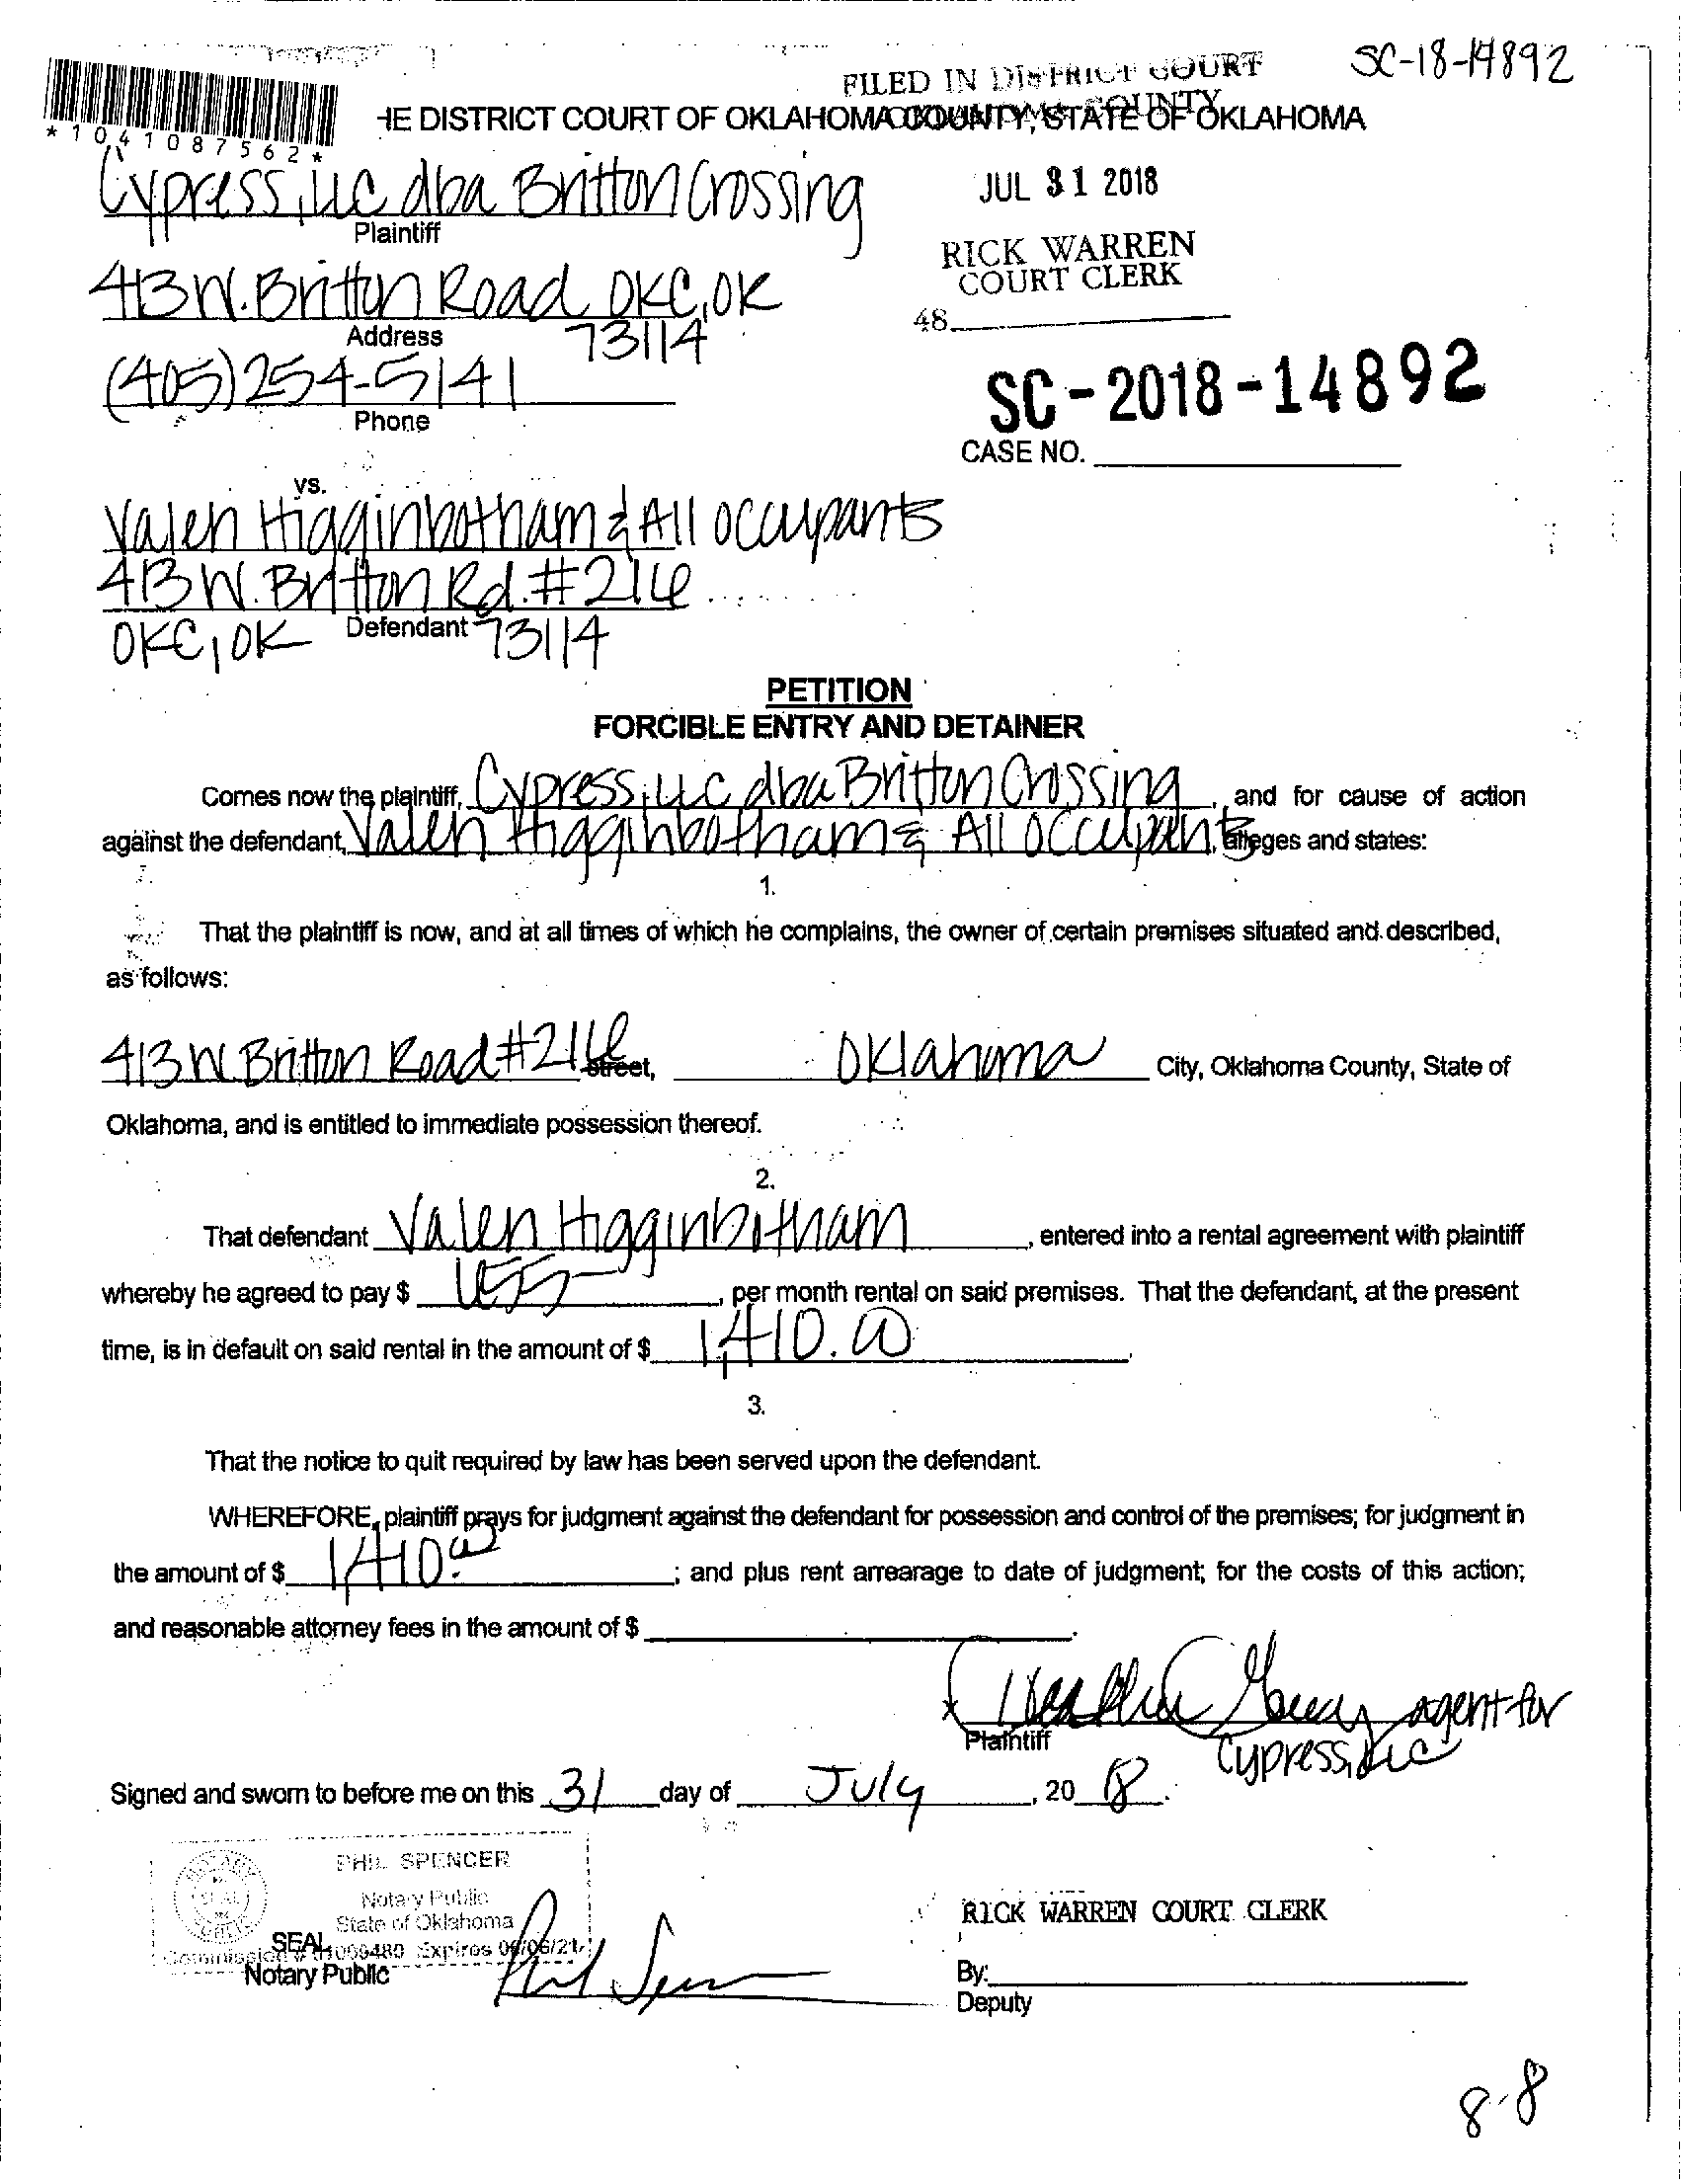 SC-18-14892
FILED IN DISTRICT COURT
OKLAHOMA COUNTY
HE DISTRICT COURT OF OKLAHOMA COUNTY, STATE OF OKLAHOMA
*1041087562*
Cypress, LLC dba Britton Crossing
Plaintiff
JUL 31 2018
RICK WARREN
COURT CLERK
48
413 W. Britton Road OKC, OK
73114
Address
(405) 254-5141
Phone
SC-2018-14892
CASE NO.
vs.
Valen Higginbotham & All occupants
413 W. Britton Rd. #216
OKC, OK 73114
Defendant
PETITION
FORCIBLE ENTRY AND DETAINER
Comes now the plaintiff, Cypress, LLC dba Britton Crossing, and for cause of action
against the defendant, Valen Higginbotham & All Occupants, alleges and states:
1.
That the plaintiff is now, and at all times of which he complains, the owner of certain premises situated and described,
as follows:
413 W Britton Road #216 Street, Oklahoma City, Oklahoma County, State of
Oklahoma, and is entitled to immediate possession thereof.
2.
That defendant Valen Higginbotham, entered into a rental agreement with plaintiff
whereby he agreed to pay $ 655-, per month rental on said premises. That the defendant, at the present
time, is in default on said rental in the amount of $ 1,410.00.
3.
That the notice to quit required by law has been served upon the defendant.
WHEREFORE, plaintiff prays for judgment against the defendant for possession and control of the premises; for judgment in
the amount of $ 1,410.00; and plus rent arrearage to date of judgment; for the costs of this action;
and reasonable attorney fees in the amount of $
x agent for
Plaintiff Cypress, LLC
Signed and sworn to before me on this 31 day of July, 2018.
PHIL SPENCER
Notary Public
State of Oklahoma
SEAL
Commission # 01009480 Expires 06/06/21
Notary Public
RICK WARREN COURT CLERK
By:
Deputy
8-8